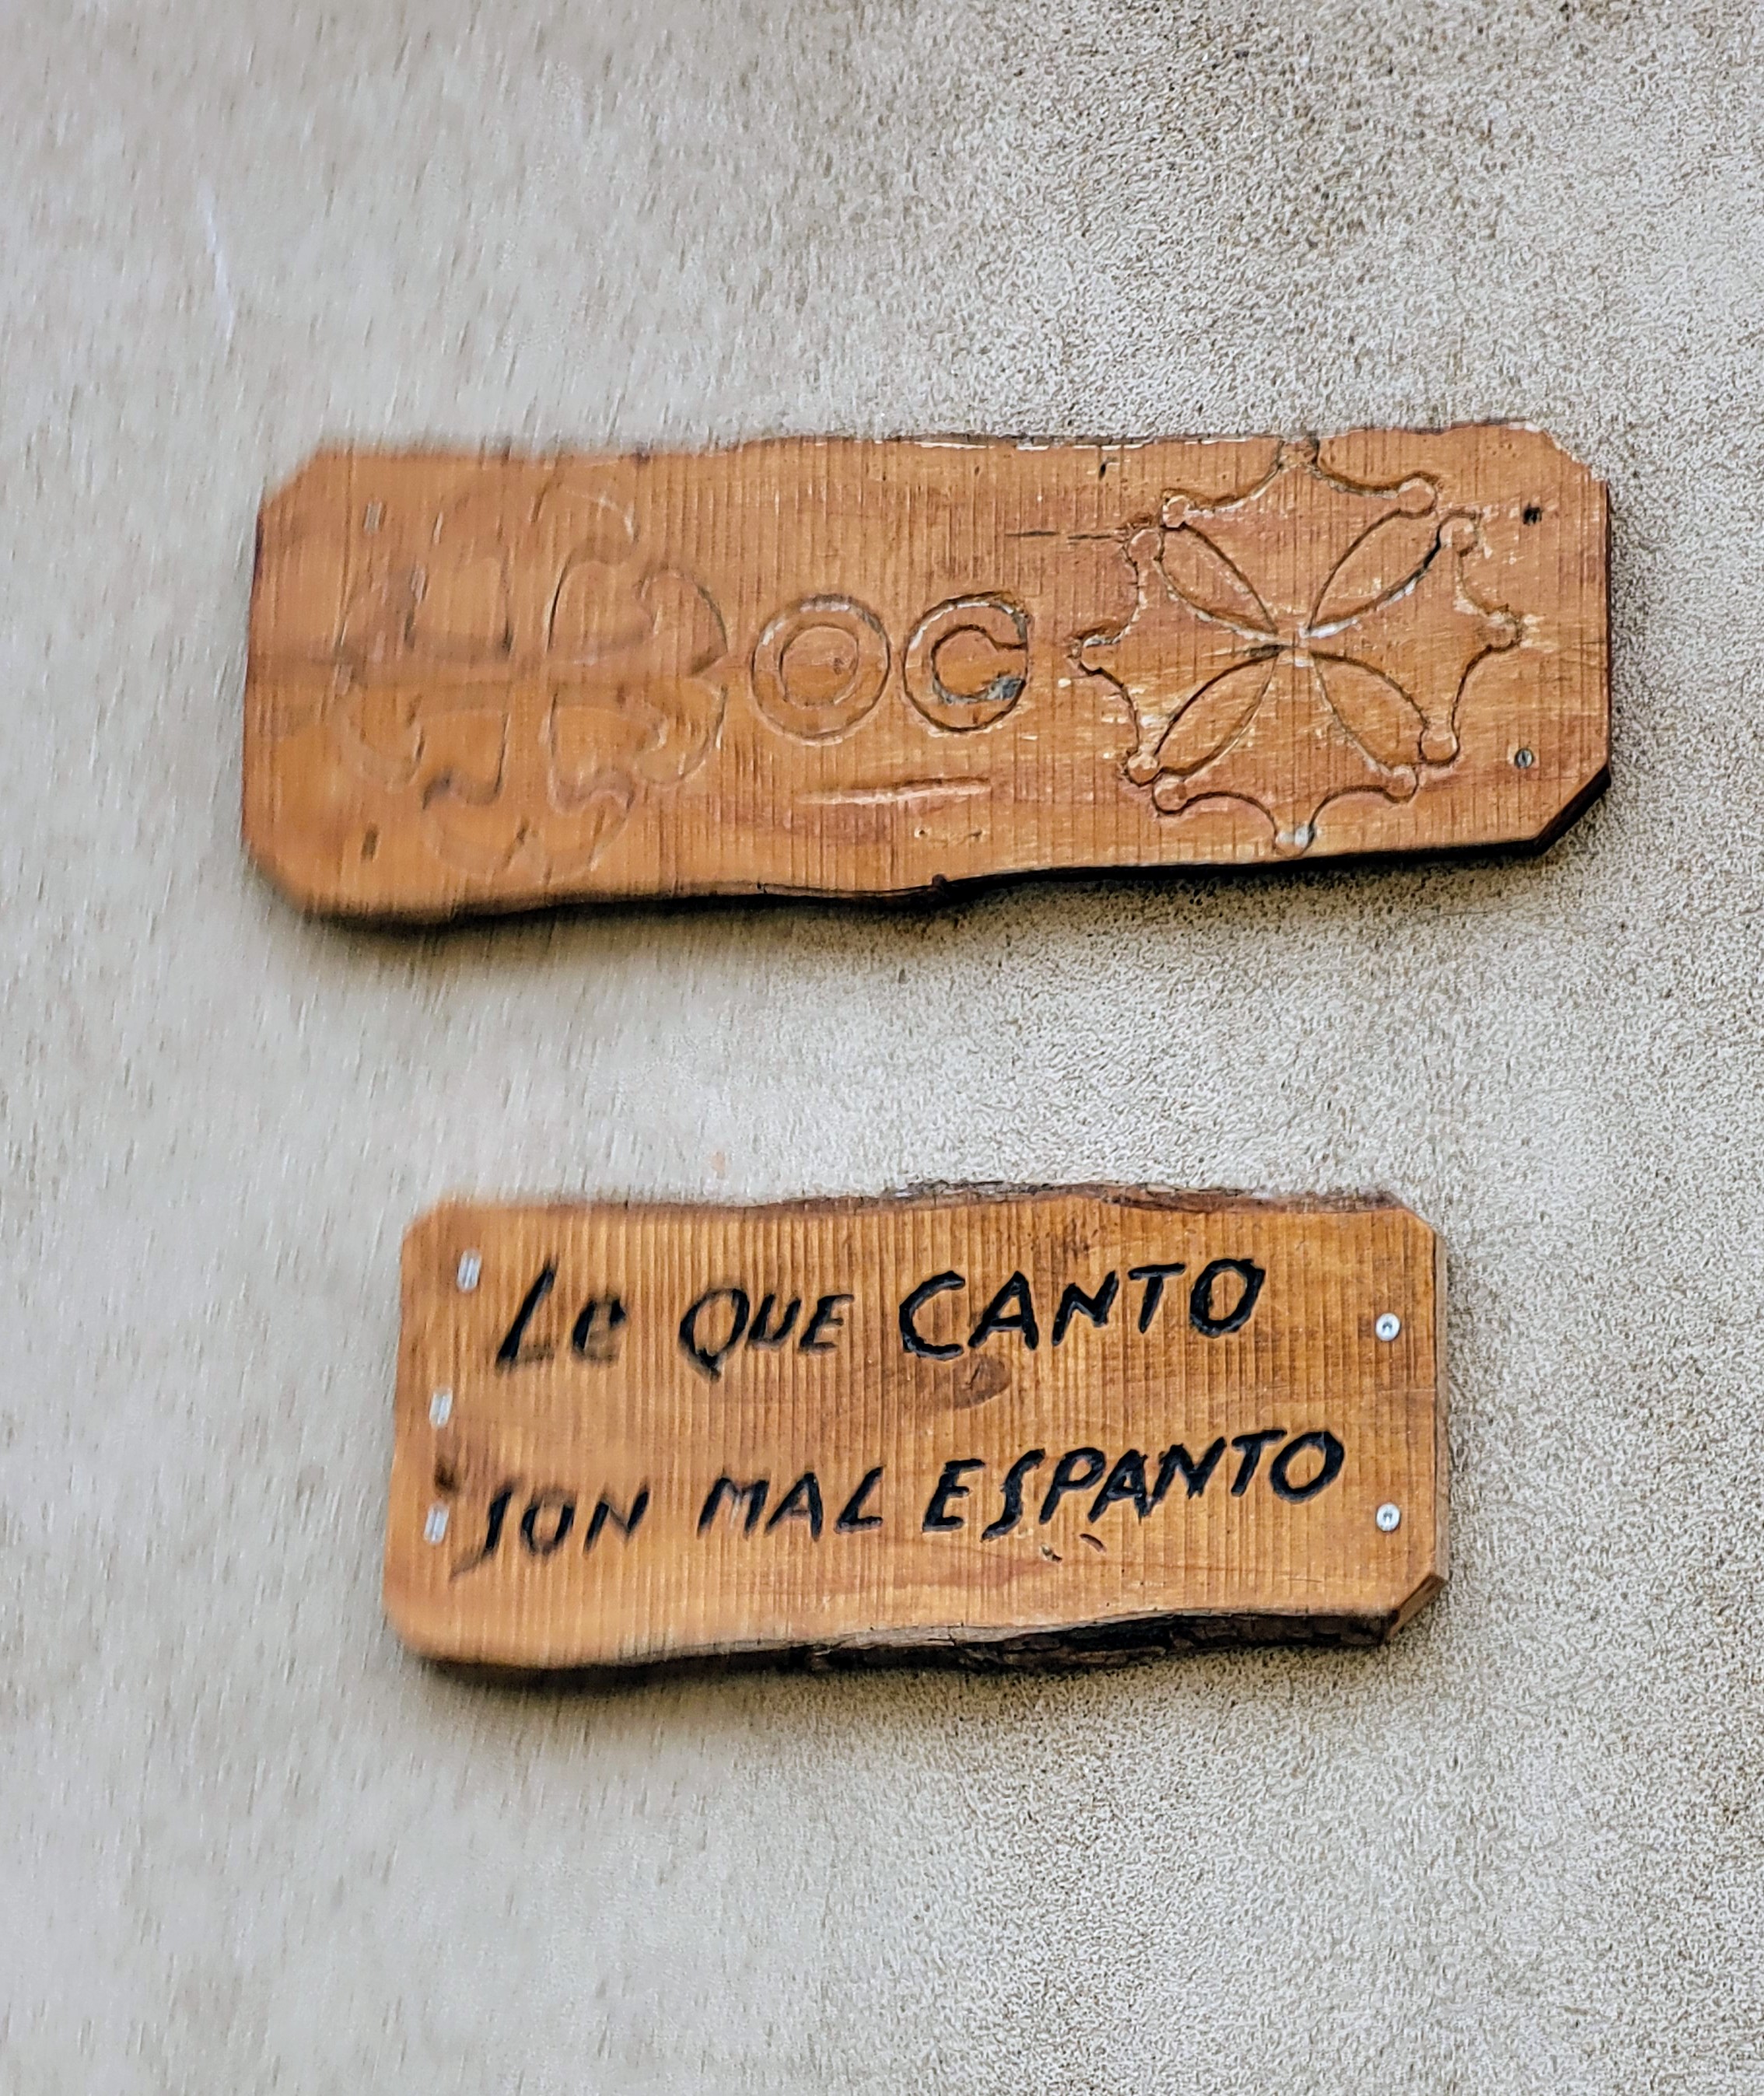 OC
Le QUE CANTO
SON MAL ESPANTO